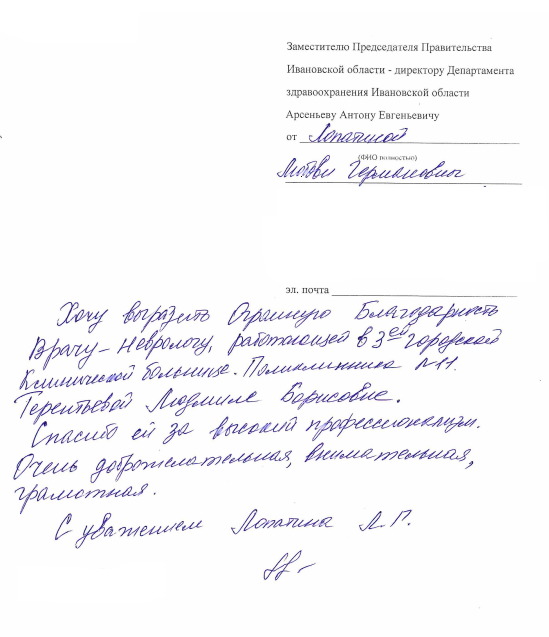 Заместителю Председателя Правительства
Ивановской области - директору Департамента
здравоохранения Ивановской области
Арсеньеву Антону Евгеньевичу
от Лопатиной
(ФИО полностью)
Любови Германовны
эл. почта
Хочу выразить Огромную Благодарность
Врачу - Неврологу, работающей в 3ей Городской
Клинической больнице. Поликлинника №11.
Терентьевой Людмиле Борисовне.
Спасибо ей за высокий профессионализм.
Очень доброжелательная, внимательная,
грамотная.
С уважением Лопатина Л.Г.